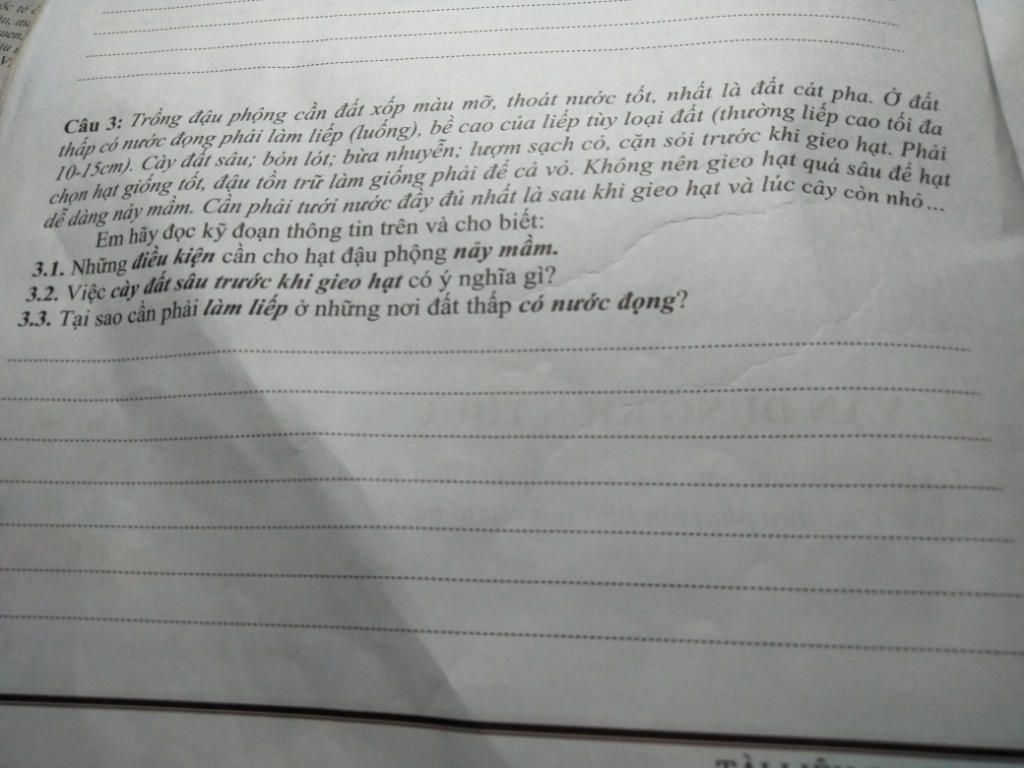 Câu 3: Trồng đậu phộng cần đất xốp màu mỡ, thoát nước tốt, nhất là đất cát pha. Ở đất
thấp có nước đọng phải làm liếp (luống), bề cao của liếp tùy loại đất (thường liếp cao tối đa
10-15cm). Cày đất sâu; bón lót; bừa nhuyễn; lượm sạch cỏ, cặn sỏi trước khi gieo hạt. Phải
chọn hạt giống tốt, đậu tồn trữ làm giống phải để cả vỏ. Không nên gieo hạt quá sâu để hạt
dễ dàng nảy mầm. Cần phải tưới nước đầy đủ nhất là sau khi gieo hạt và lúc cây còn nhỏ...
Em hãy đọc kỹ đoạn thông tin trên và cho biết:
3.1. Những điều kiện cần cho hạt đậu phộng nảy mầm.
3.2. Việc cày đất sâu trước khi gieo hạt có ý nghĩa gì?
3.3. Tại sao cần phải làm liếp ở những nơi đất thấp có nước đọng?